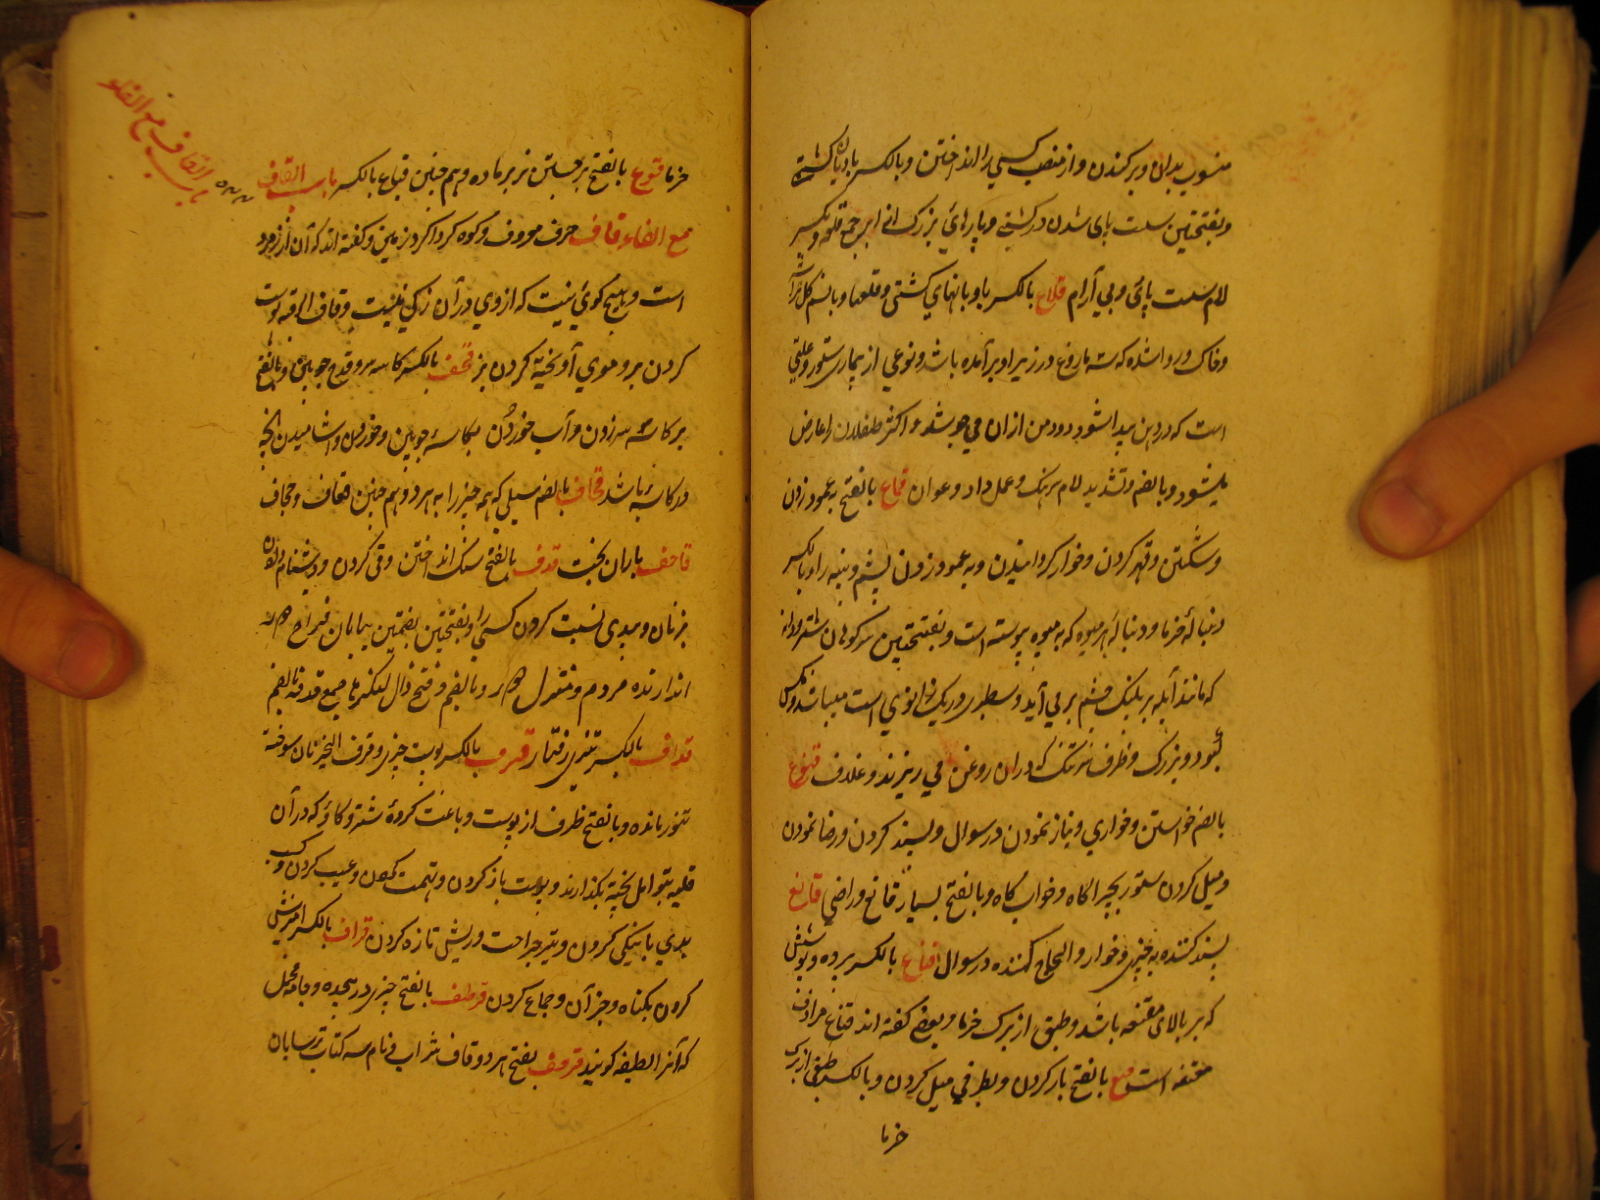 منسوب بدان و برکندن و از منصب کسی را انداختن و بالکسر بادبان کشتی
و بفتحتین سست پای شدن در کشتی و پارهای بزرک از ابر جمع قلعه و بکسر
لام سست پای و بی آرام قلاع بالکسر بادبانهای کشتی و قلعها و بالضم کل
است که در دهن پیدا شود و دهن از ان می جوشد و اکثر طفلان را عارض
میشود و بالضم و تشدید لام سرهنک و عمل دار و عوان قمع بالفتح بعمود زدن
و شکستن و قهر کردن و خوار کردانیدن و به عمود زدن پشم و پنبه را و بالکسر
دنباله خرما و دنباله هر میوه که به میوه پیوسته است و بفتحتین
که مانند آبله بر پلک چشم بر می آید و سطبری در یک زانوی اسب میباشد
کبود و بزرک و ظرف سر تنک که در ان روغن می ریزند و غلاف قنوع
بالضم خواستن و خواری و نیاز نمودن در سوال و پسند کردن و رضا نمودن
و میل کردن ستور بچراکاه و خوابکاه و بالفتح بسیار قانع و راضی قانع
پسند کننده به چیزی و خوار و الحاح کننده در سوال قناع بالکسر پرده و پوشش
که بر بالای مقنعه باشد و طبق از برک خرما و بعضی کفته اند قناع مرادف
مقنعه است بالفتح باز کردن و بطرفی میل کردن و بالکسر طبق از برک
خرما
باب القاف مع الفاء
خرما قنوع بالفتح برجستن نر بر ماده و هم چنین قباع بالکسر باب القاف
مع الفاء قاف حرف معروف و کوه کرداکرد زمین و کفته اند که آن از زمرد
است و هیچ کوی نیست که از وی در آن رکی نیست و قاف
کردن بر و موی آویخته کردن بز قحف بالکسر کاسه سر و قدح چوبین و بالفتح
بر کاسه سر زدن و آب خوردن بکاسه چوبین و خوردن و اشامیدن انچه
در کاسه باشد قحاف بالضم سیلی که همه چیز را به برد و هم چنین قعاف و جحاف
قاحف باران سخت قذف بالفتح سنک انداختن و قی کردن و دشنام دادن
بزنان و ببدی نسبت کردن کسی را و بفتحتین بضمتین بیابان فراخ
اندازنده مردم و منزل و بالضم و فتح ذال کنکرها جمع قذفه بالضم
قذاف بالکسر تیزی رفتار قرف بالکسر پوست چیزی و قرف الخبز نان سوخته
تنور مانده و بالفتح ظرف از پوست دباغت کرده شتر و کاو که در آن
قلیه بتوابل پخته بکذارند و پوست باز کردن و تهمت کردن و عیب کردن و کسب
بدی یا نیکی کردن و نیز جراحت و ریش تازه کردن قراف بالکسر امیزش
کردن بکناه و جز آن و جماع کردن قرطف بالفتح چیزی در پیچیده و جامه مخمل
که آنرا قطیفه کویند قرقف بفتح هر دو قاف شراب و نام سه کتاب ترسایان